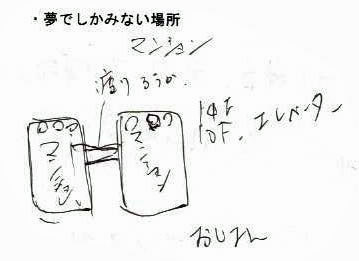 ・夢でしかみない場所
マンション
渡りろうか
マンション
マンション
10F、エレベーター